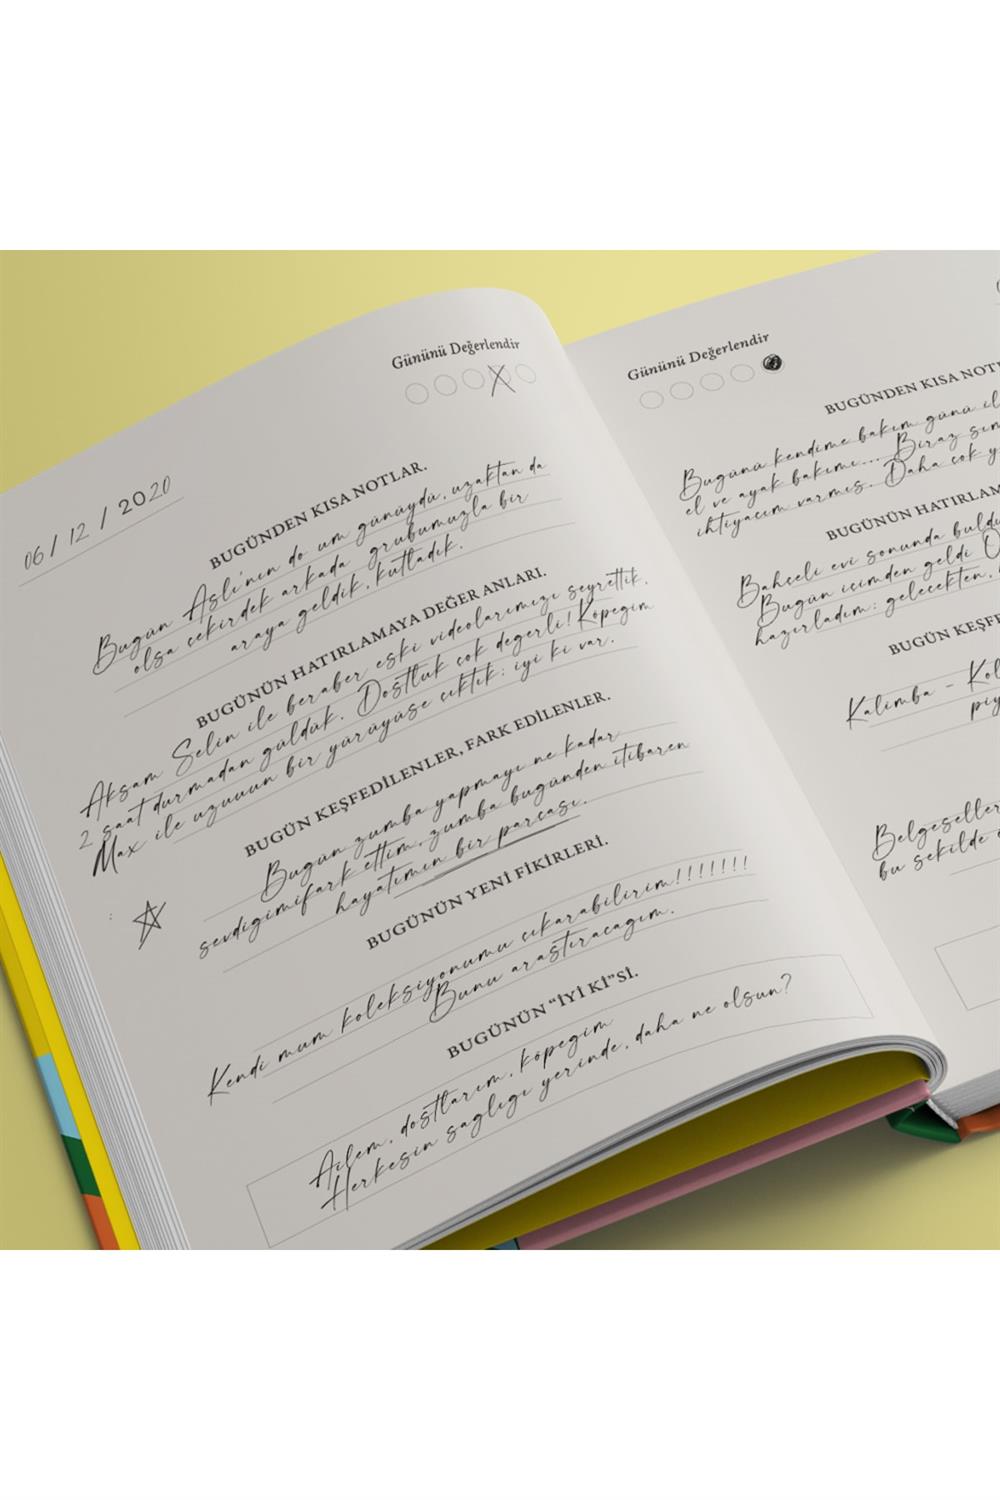 Gününü Değerlendir
06 / 12 / 2020
BUGÜNDEN KISA NOTLAR.
Bugün Aslı'nın do um günüydü, uzaktan da
olsa çekirdek arkada grubumuzla bir
araya geldik, kutladık.
BUGÜNÜN HATIRLAMAYA DEĞER ANLARI.
Akşam Selin ile beraber eski videolarımızı seyrettik,
2 saat durmadan güldük. Dostluk çok değerli! Köpeğim
Max ile uzuuun bir yürüyüşe çıktık: iyi ki var.
BUGÜN KEŞFEDİLENLER, FARK EDİLENLER.
Bugün zumba yapmayı ne kadar
sevdiğimifark ettim, zumba bugünden itibaren
hayatımın bir parçası.
BUGÜNÜN YENİ FİKİRLERİ.
Kendi mum koleksiyonumu çıkarabilirim!!!!!!!
Bunu araştıracağım.
BUGÜNÜN “İYİ Kİ”Sİ.
Ailem, dostlarım, köpeğim
Herkesin sağlığı yerinde, daha ne olsun?
Gününü Değerlendir
BUGÜNDEN KISA NOTL
Bugünü kendime bakım günü il
el ve ayak bakımı... Biraz
ihtiyacım varmış. Daha çok
BUGÜNÜN HATIRLAM
Bahçeli evi sonunda buldu
Bugün içimden geldi
hazırladım: gelecekten,
BUGÜN KEŞFE
Kalimba - Kol
piy
Belgeseller
bu şekilde